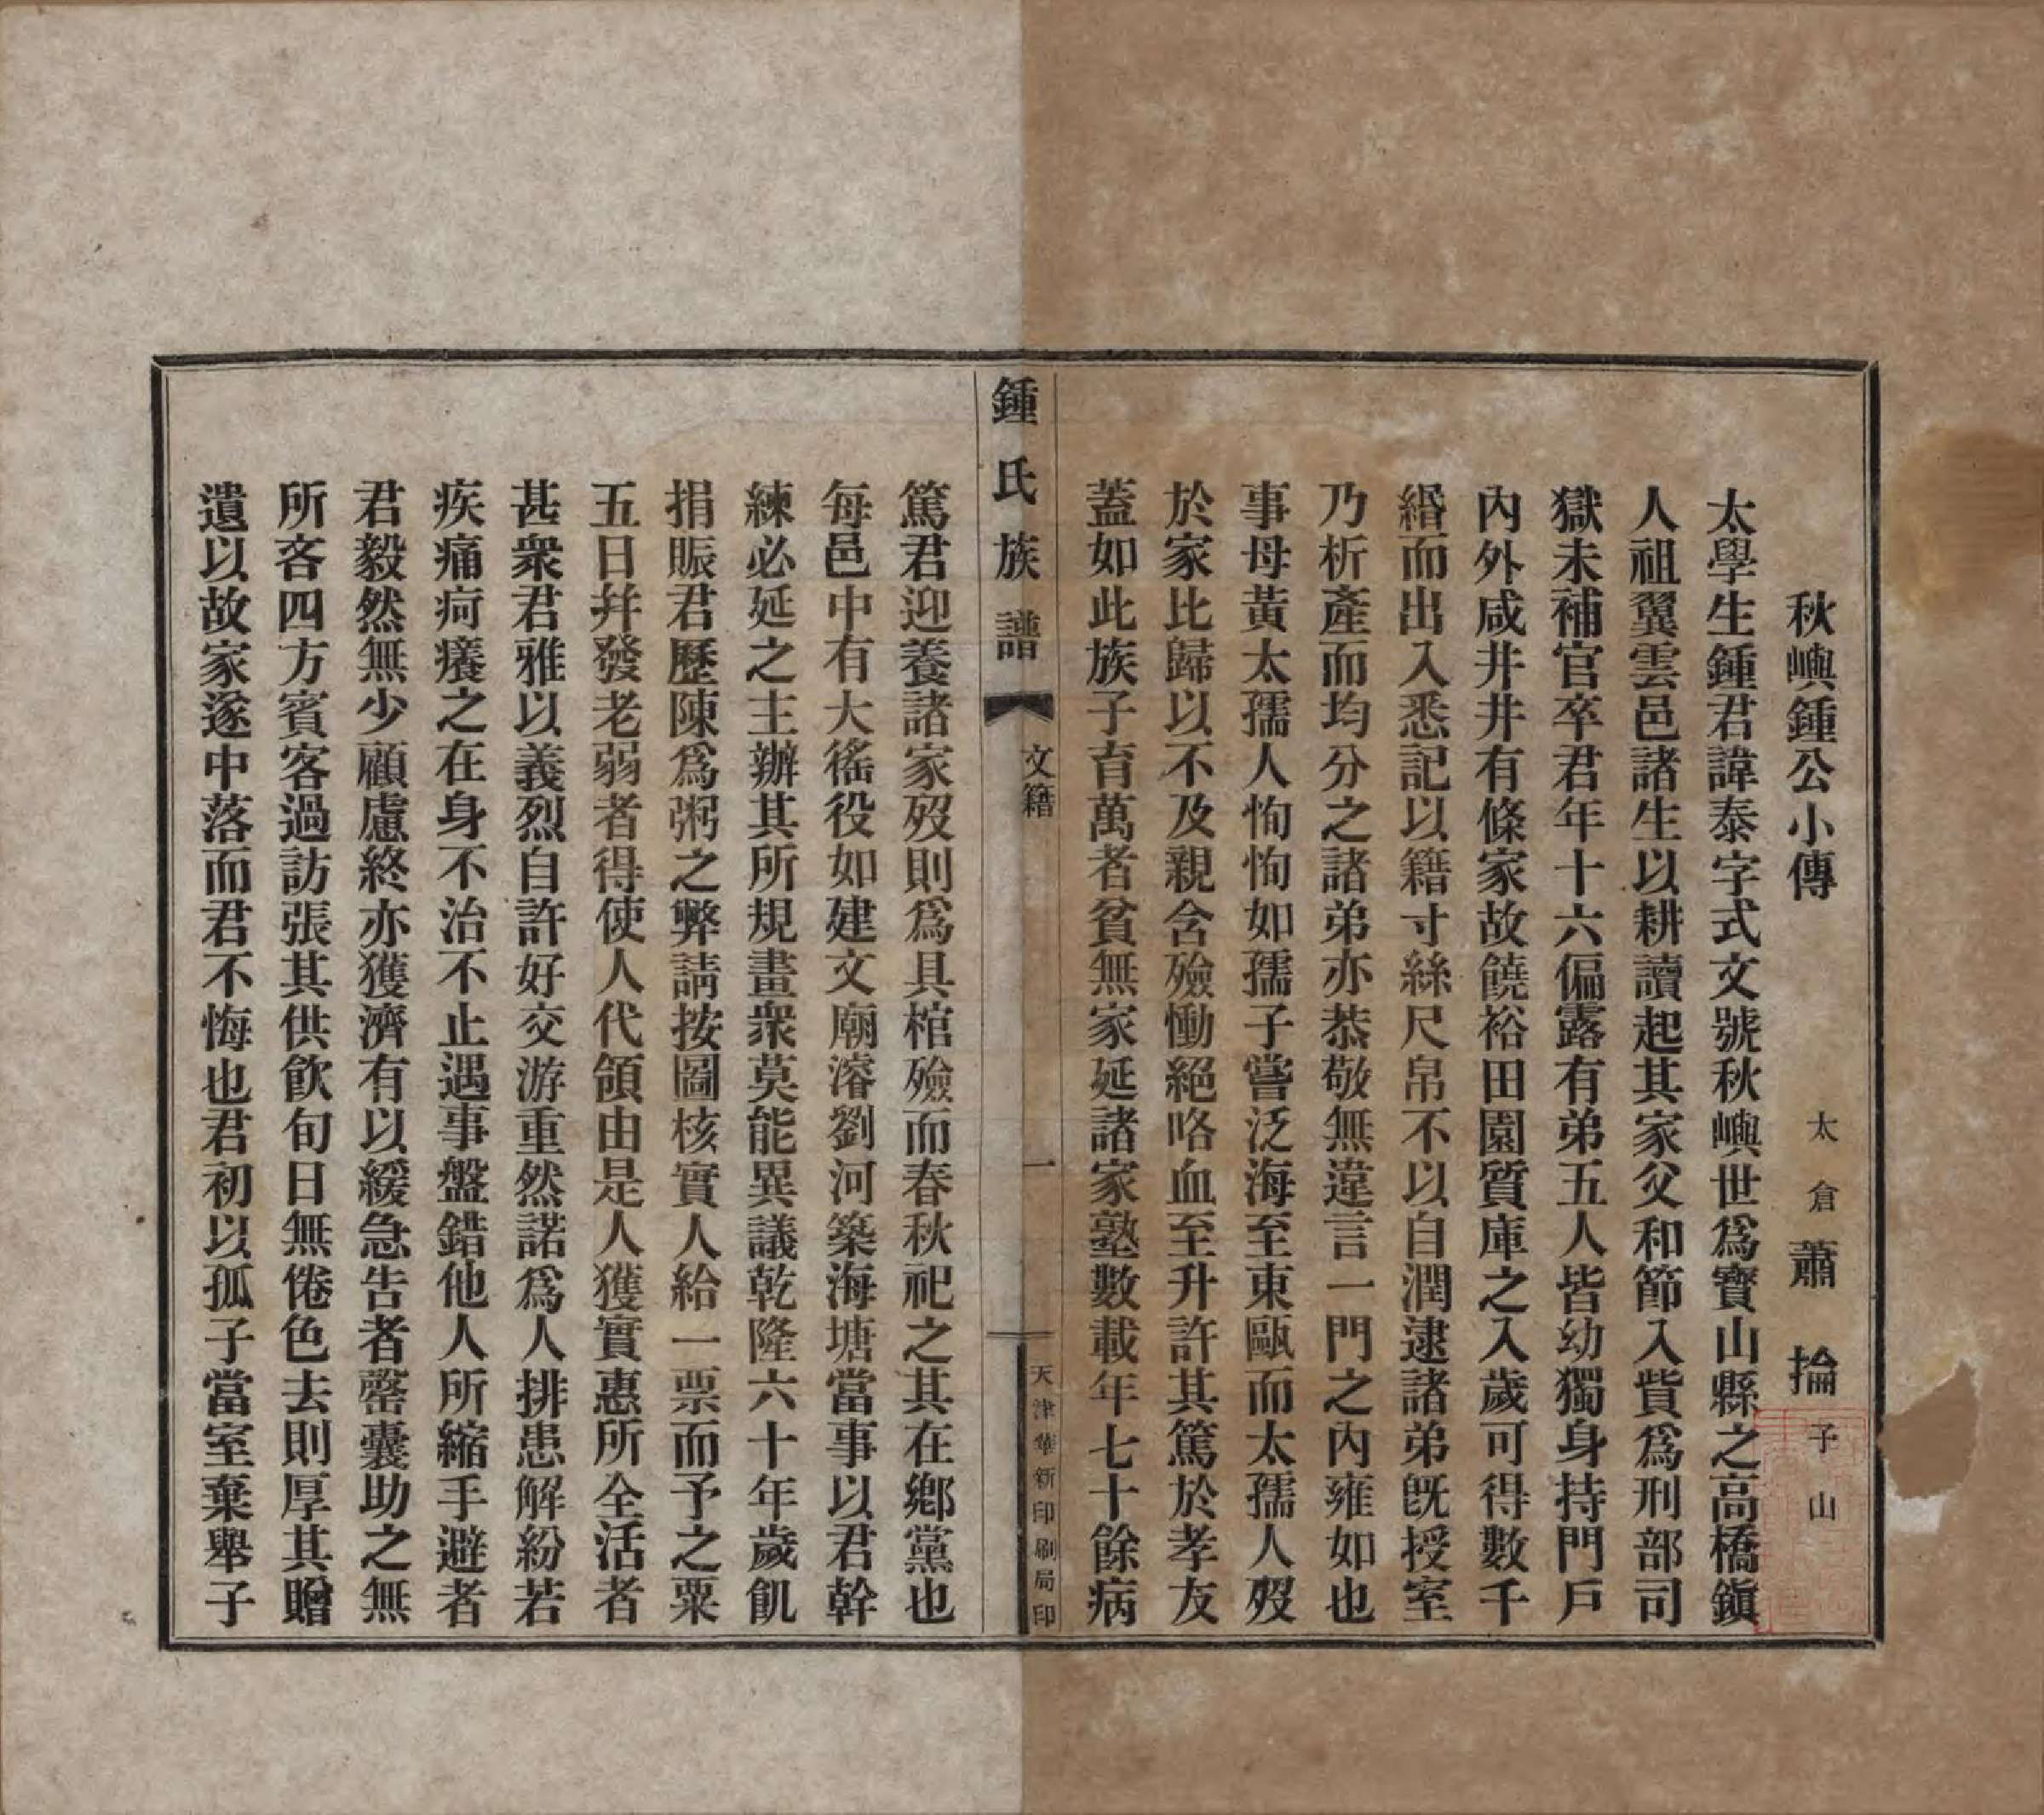 秋嶼鍾公小傳　太倉蕭掄子山
太學生鍾君諱泰字式文號秋嶼世爲寶山縣之高橋鎭
人祖翼雲邑諸生以耕讀起其家父和節入貲爲刑部司
獄未補官卒君年十六偏露有弟五人皆幼獨身持門戶
內外咸井井有條家故饒裕田園質庫之入歲可得數千
緡而出入悉記以籍寸絲尺帛不以自潤逮諸弟旣授室
乃析產而均分之諸弟亦恭敬無違言一門之內雍如也
事母黃太孺人恂恂如孺子嘗泛海至東甌而太孺人歿
於家比歸以不及親含殮慟絕咯血至升許其篤於孝友
蓋如此族子育萬者貧無家延諸家塾數載年七十餘病
鍾氏族譜　文籍　一　天津華新印刷局印
篤君迎養諸家歿則爲具棺殮而春秋祀之其在鄉黨也
每邑中有大徭役如建文廟濬劉河築海塘當事以君幹
練必延之主辦其所規畫衆莫能異議乾隆六十年歲飢
捐賑君歷陳爲粥之弊請按圖核實人給一票而予之粟
五日幷發老弱者得使人代領由是人獲實惠所全活者
甚衆君雅以義烈自許好交游重然諾爲人排患解紛若
疾痛疴癢之在身不治不止遇事盤錯他人所縮手避者
君毅然無少顧慮終亦獲濟有以緩急告者罄囊助之無
所吝四方賓客過訪張其供飲旬日無倦色去則厚其贈
遺以故家遂中落而君不悔也君初以孤子當室棄舉子